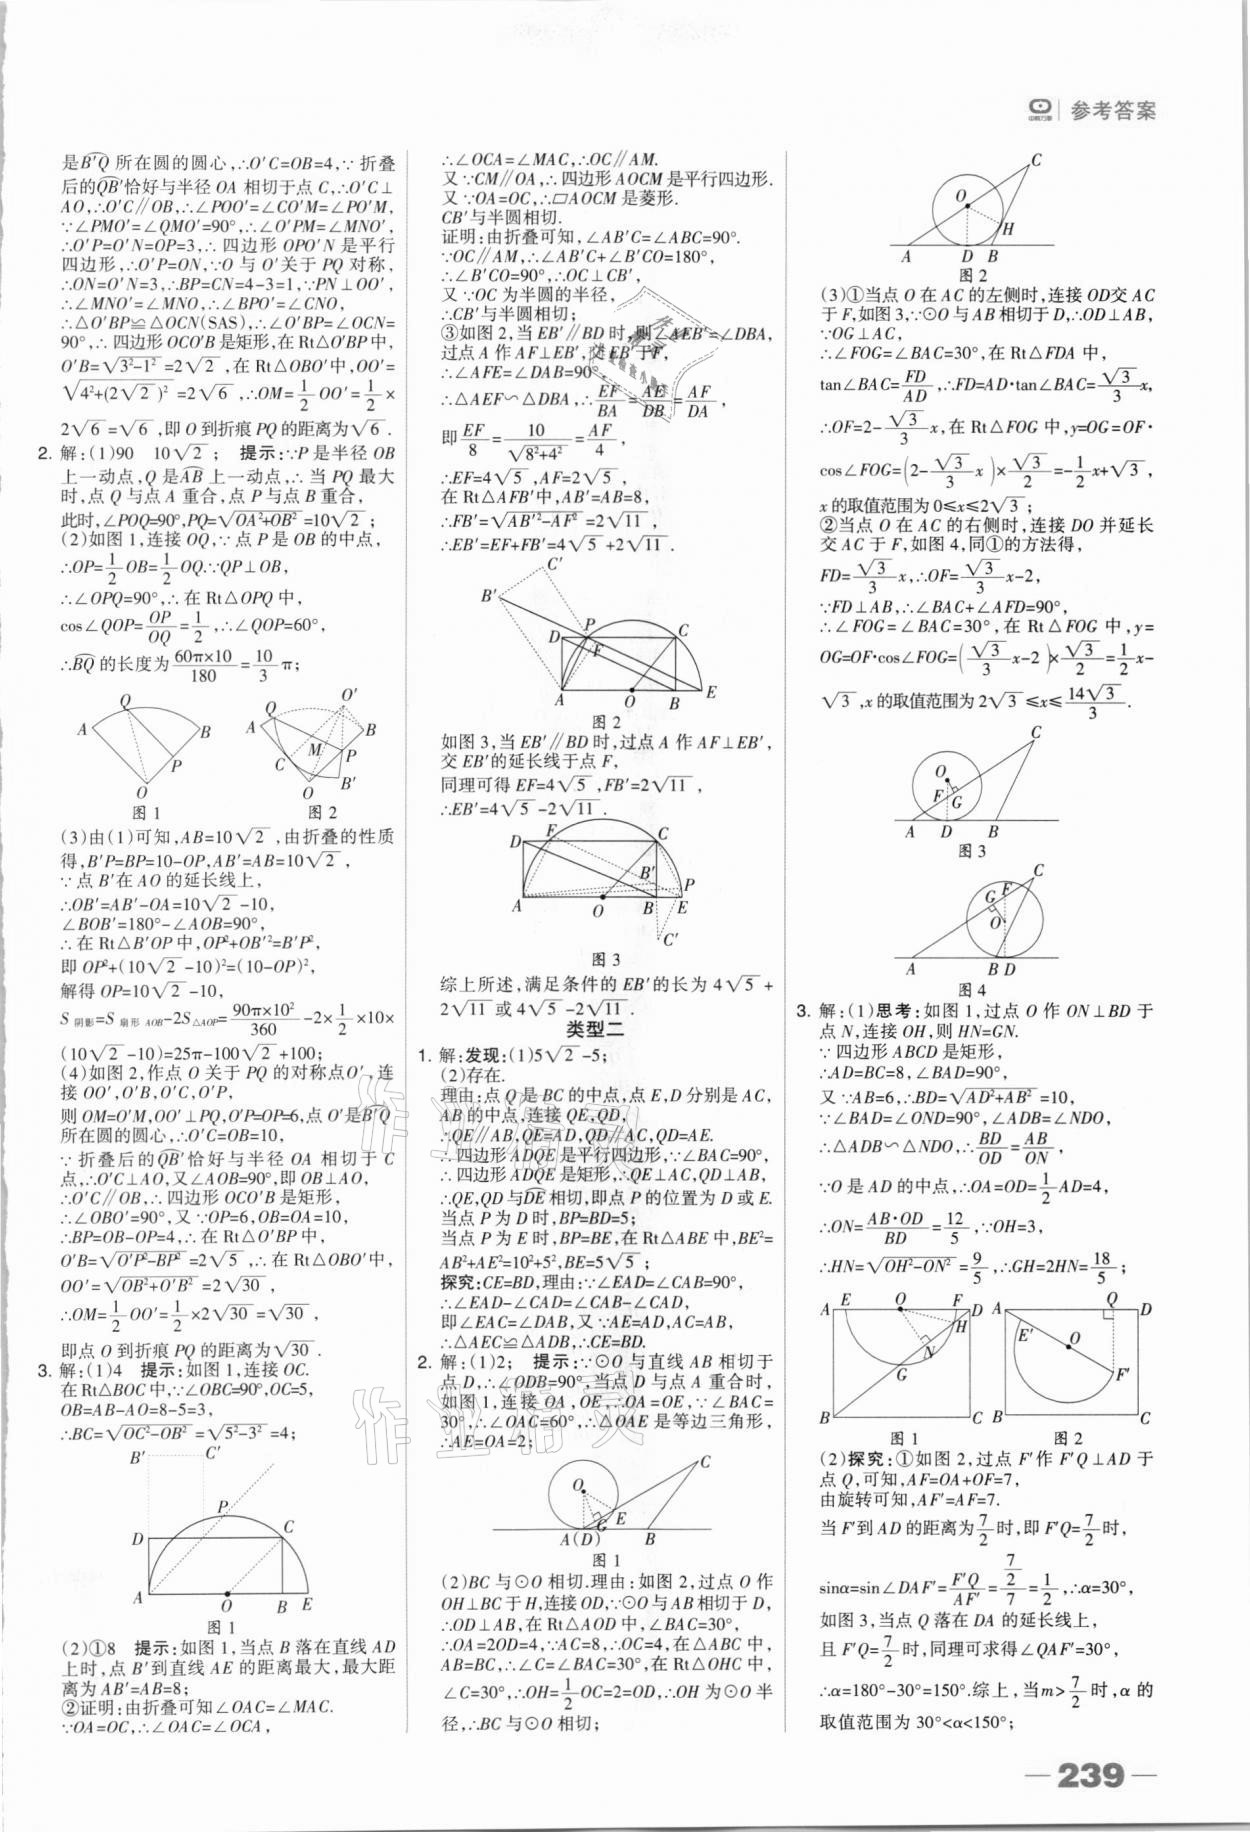 参考答案
是B'Q 所在圆的圆心,∴O'C=OB=4,∵折叠
后的QB'恰好与半径 OA 相切于点 C,∴O'C⊥
AO,∴O'C∥OB,∴∠POO'=∠CO'M=∠PO'M,
∵∠PMO'=∠QMO'=90°,∴∠O'PM=∠MNO',
∴O'P=O'N=OP=3,∴四边形 OPO'N 是平行
四边形,∴O'P=ON,∵O 与 O'关于 PQ 对称,
∴ON=O'N=3,∴BP=CN=4-3=1,∵PN⊥OO',
∴∠MNO'=∠MNO,∴∠BPO'=∠CNO,
∴△O'BP≌△OCN(SAS),∴∠O'BP=∠OCN=
90°,∴四边形 OCO'B 是矩形,在 Rt△O'BP 中,
O'B=√(3²-1²)=2√2,在 Rt△OBO'中,OO'=
√(4²+(2√2)²)=2√6,∴OM=1/2 OO'=1/2×
2√6=√6,即 O 到折痕 PQ 的距离为√6.
2. 解:(1)90 10√2; 提示:∵P 是半径 OB
上一动点,Q 是AB 上一动点,∴当 PQ 最大
时,点 Q 与点 A 重合,点 P 与点 B 重合,
此时,∠POQ=90°,PQ=√(OA²+OB²)=10√2;
(2)如图 1,连接 OQ,∵点 P 是 OB 的中点,
∴OP=1/2 OB=1/2 OQ.∵QP⊥OB,
∴∠OPQ=90°,∴在 Rt△OPQ 中,
cos∠QOP=OP/OQ=1/2,∴∠QOP=60°,
∴BQ 的长度为60π×10/180=10/3 π;
A Q B P O
图 1
Q O' A B M P C O B'
图 2
(3)由(1)可知,AB=10√2,由折叠的性质
得,B'P=BP=10-OP,AB'=AB=10√2,
∵点 B'在 AO 的延长线上,
∴OB'=AB'-OA=10√2-10,
∠BOB'=180°-∠AOB=90°,
∴在 Rt△B'OP 中,OP²+OB'²=B'P²,
即 OP²+(10√2-10)²=(10-OP)²,
解得 OP=10√2-10,
S阴影=S扇形AOB-2S△AOP=90π×10²/360-2×1/2×10×
(10√2-10)=25π-100√2+100;
(4)如图 2,作点 O 关于 PQ 的对称点O',连
接 OO',O'B,O'C,O'P,
则 OM=O'M,OO'⊥PQ,O'P=OP=6,点 O'是B'Q
所在圆的圆心,∴O'C=OB=10,
∵折叠后的QB'恰好与半径 OA 相切于 C
点,∴O'C⊥AO,又∠AOB=90°,即 OB⊥AO,
∴O'C∥OB,∴四边形 OCO'B 是矩形,
∴∠OBO'=90°,又∵OP=6,OB=OA=10,
∴BP=OB-OP=4,∴在 Rt△O'BP 中,
O'B=√(O'P²-BP²)=2√5,∴在 Rt△OBO'中,
OO'=√(OB²+O'B²)=2√30,
∴OM=1/2 OO'=1/2×2√30=√30,
即点 O 到折痕 PQ 的距离为√30.
3. 解:(1)4 提示:如图 1,连接 OC.
在 Rt△BOC 中,∵∠OBC=90°,OC=5,
OB=AB-AO=8-5=3,
∴BC=√(OC²-OB²)=√(5²-3²)=4;
B' C' P D C A O B E
图 1
(2)①8 提示:如图 1,当点 B 落在直线 AD
上时,点 B'到直线 AE 的距离最大,最大距
离为 AB'=AB=8;
②证明:由折叠可知∠OAC=∠MAC.
∵OA=OC,∴∠OAC=∠OCA,
∴∠OCA=∠MAC,∴OC∥AM.
又∵CM∥OA,∴四边形 AOCM 是平行四边形.
又∵OA=OC,∴▱AOCM 是菱形.
CB'与半圆相切.
证明:由折叠可知,∠AB'C=∠ABC=90°.
∵OC∥AM,∴∠AB'C+∠B'CO=180°,
∴∠B'CO=90°,∴OC⊥CB',
又∵OC 为半圆的半径,
∴CB'与半圆相切;
③如图 2,当 EB'∥BD 时,则∠AEB'=∠DBA,
过点 A 作 AF⊥EB',交 EB'于F,
∴∠AFE=∠DAB=90°,
∴△AEF∽△DBA,∴EF/BA=AE/DB=AF/DA,
即EF/8=10/√(8²+4²)=AF/4,
∴EF=4√5,AF=2√5,
在 Rt△AFB'中,AB'=AB=8,
∴FB'=√(AB'²-AF²)=2√11,
∴EB'=EF+FB'=4√5+2√11.
C' B' D P C F A O B E
图 2
如图 3,当 EB'∥BD 时,过点 A 作 AF⊥EB',
交 EB'的延长线于点 F,
同理可得 EF=4√5,FB'=2√11,
∴EB'=4√5-2√11.
D F C B' P A O B E C'
图 3
综上所述,满足条件的 EB'的长为 4√5+
2√11或 4√5-2√11.
类型二
1. 解:发现:(1)5√2-5;
(2)存在.
理由:点 Q 是 BC 的中点,点 E,D 分别是 AC,
AB 的中点,连接 QE,QD,
∴QE∥AB,QE=AD,QD∥AC,QD=AE.
∴四边形 ADQE 是平行四边形,∵∠BAC=90°,
∴四边形 ADQE 是矩形,∴QE⊥AC,QD⊥AB,
∴QE,QD 与DE相切,即点 P 的位置为 D 或 E.
当点 P 为 D 时,BP=BD=5;
当点 P 为 E 时,BP=BE,在 Rt△ABE 中,BE²=
AB²+AE²=10²+5²,BE=5√5;
探究:CE=BD,理由:∵∠EAD=∠CAB=90°,
∴∠EAD-∠CAD=∠CAB-∠CAD,
即∠EAC=∠DAB,又∵AE=AD,AC=AB,
∴△AEC≌△ADB,∴CE=BD.
2. 解:(1)2; 提示:∵⊙O 与直线 AB 相切于
点 D,∴∠ODB=90°,当点 D 与点 A 重合时,
如图 1,连接 OA,OE,∴OA=OE,∵∠BAC=
30°,∴∠OAC=60°,∴△OAE 是等边三角形,
∴AE=OA=2;
O C G E A(D) B
图 1
(2)BC 与⊙O 相切.理由:如图 2,过点 O 作
OH⊥BC 于 H,连接 OD,∵⊙O 与 AB 相切于 D,
∴OD⊥AB,在 Rt△AOD 中,∠BAC=30°,
∴OA=2OD=4,∵AC=8,∴OC=4,在△ABC 中,
AB=BC,∴∠C=∠BAC=30°,在 Rt△OHC 中,
∠C=30°,∴OH=1/2 OC=2=OD,∴OH 为⊙O 半
径,∴BC 与⊙O 相切;
C O H A D B
图 2
(3)①当点 O 在 AC 的左侧时,连接 OD交 AC
于 F,如图 3,∵⊙O 与 AB 相切于 D,∴OD⊥AB,
∵OG⊥AC,
∴∠FOG=∠BAC=30°,在 Rt△FDA 中,
tan∠BAC=FD/AD,∴FD=AD·tan∠BAC=√3/3 x,
∴OF=2-√3/3 x,在 Rt△FOG 中,y=OG=OF·
cos∠FOG=(2-√3/3 x)×√3/2=-1/2 x+√3,
x 的取值范围为 0≤x≤2√3;
②当点 O 在 AC 的右侧时,连接 DO 并延长
交 AC 于 F,如图 4,同①的方法得,
FD=√3/3 x,∴OF=√3/3 x-2,
∵FD⊥AB,∴∠BAC+∠AFD=90°,
∴∠FOG=∠BAC=30°,在 Rt△FOG 中,y=
OG=OF·cos∠FOG=(√3/3 x-2)×√3/2=1/2 x-
√3,x 的取值范围为 2√3≤x≤14√3/3.
C O F G A D B
图 3
C F G O A B D
图 4
3. 解:(1)思考:如图 1,过点 O 作 ON⊥BD 于
点 N,连接 OH,则 HN=GN.
∵四边形 ABCD 是矩形,
∴AD=BC=8,∠BAD=90°,
又∵AB=6,∴BD=√(AD²+AB²)=10,
∵∠BAD=∠OND=90°,∠ADB=∠NDO,
∴△ADB∽△NDO,∴BD/OD=AB/ON,
∵O 是 AD 的中点,∴OA=OD=1/2 AD=4,
∴ON=AB·OD/BD=12/5,∵OH=3,
∴HN=√(OH²-ON²)=9/5,∴GH=2HN=18/5;
A E O F D H N G B C
图 1
A Q D E' O F' B C
图 2
(2)探究:①如图 2,过点 F'作 F'Q⊥AD 于
点 Q,可知,AF=OA+OF=7,
由旋转可知,AF'=AF=7.
当 F'到 AD 的距离为7/2时,即 F'Q=7/2时,
sinα=sin∠DAF'=F'Q/AF'=(7/2)/7=1/2,∴α=30°,
如图 3,当点 Q 落在 DA 的延长线上,
且 F'Q=7/2时,同理可求得∠QAF'=30°,
∴α=180°-30°=150°.综上,当m>7/2时,α 的
取值范围为 30°<α<150°;
239
作业精灵
作业精灵